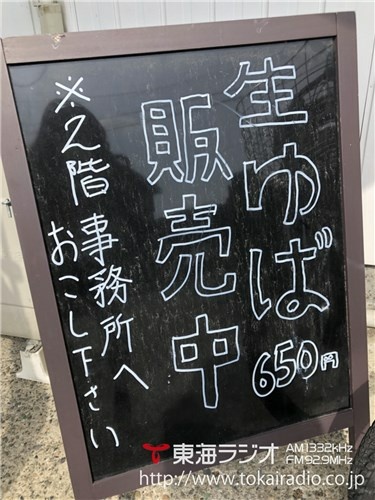 生ゆば
650円
販売中
※2階事務所へ
おこし下さい
東海ラジオ AM1332kHz
FM92.9MHz
http://www.tokairadio.co.jp